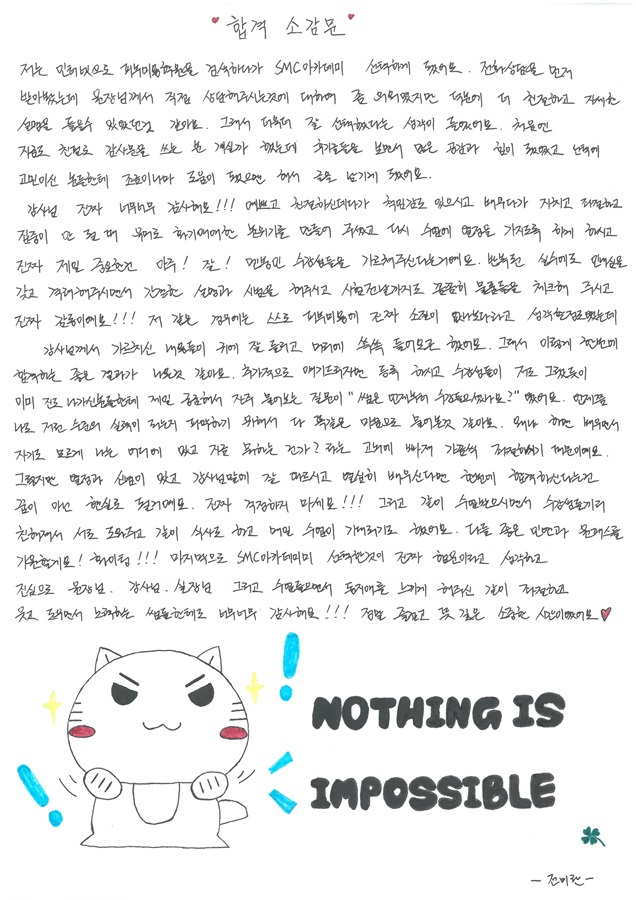 합격 소감문
저는 인터넷으로 피부미용학원을 검색하다가 SMC아카데미 선택하게 됐어요. 전화상담을 먼저
받아봤었는데 원장님께서 직접 상담해주시는것에 대하여 좀 의외였지만 덕분에 더 친절하고 자세한
설명을 들을수 있었던것 같아요. 그래서 더욱더 잘 선택했다는 생각이 들었어요. 처음엔
지금도 친필로 감사문을 쓰는 분 계실까 했는데 후기글들을 보면서 많은 공감과 힘이 됐었고 선택에
고민이신 분들한테 조금이나마 도움이 됐으면 해서 글을 남기게 됐어요.
강사님 진짜 너무너무 감사해요!!! 예쁘고 친절하신데다가 책임감도 있으시고 배우다가 지치고 좌절하고
집중이 안 될 때 유머로 화기애애한 분위기를 만들어 주셨고 다시 수업에 열정을 가지도록 하게 하시고
진짜 제일 중요한건 아주! 잘! 수강생들을 가르쳐주신다는거예요. 반복된 실수에도 인내심을
갖고 격려해주시면서 간결한 설명과 시범을 해주시고 시험전날까지도 꼼꼼히 물품들을 체크해 주시고
진짜 감동이에요!!! 저 같은 경우에는 스스로 피부미용에 진짜 소질이 없나보다라고 생각한정도였는데
강사님께서 가르치신 내용들이 귀에 잘 들리고 머리에 쏙쏙 들어오곤 했어요. 그래서 이렇게 한번에
합격하는 좋은 결과가 나온것 같아요. 추가적으로 얘기드리자면 등록 하시고 수강생들이 저도 그랬듯이
이미 진도 나가신분들한테 제일 궁금해서 자주 물어보는 질문이 "쌤은 언제부터 수강들으셨나요?" 였어요. 언제쯤
나도 저런 수준의 실력이 되는지 파악하기 위해서 다 똑같은 마음으로 물어본것 같아요. 왜냐 하면 배우면서
자기도 모르게 나는 어디에 있고 저걸 못하는 건가? 라는 고뇌에 빠져 가끔씩 좌절하기 때문이에요.
그렇지만 열정과 신념이 있고 강사님말에 잘 따르시고 열심히 배우신다면 한번에 합격하신다는건
꿈이 아닌 현실로 될거예요. 진짜 걱정하지 마세요!!! 그리고 같이 수업받으시면서 수강생들끼리
친해져서 서로 도와주고 같이 식사도 하고 매일 수업이 기대되기도 했어요. 다들 좋은 인연과 원패스를
기원할게요! 화이팅!!! 마지막으로 SMC아카데미 선택한것이 진짜 행운이라고 생각하고
진심으로 원장님. 강사님. 실장님 그리고 수업들으면서 동지애를 느끼게 해주신 같이 좌절하고
웃고 도우면서 노력하는 쌤들한테도 너무너무 감사해요!!! 정말 즐겁고 뜻 깊은 소중한 시간이었어요
NOTHING IS
IMPOSSIBLE
- 전미란 -